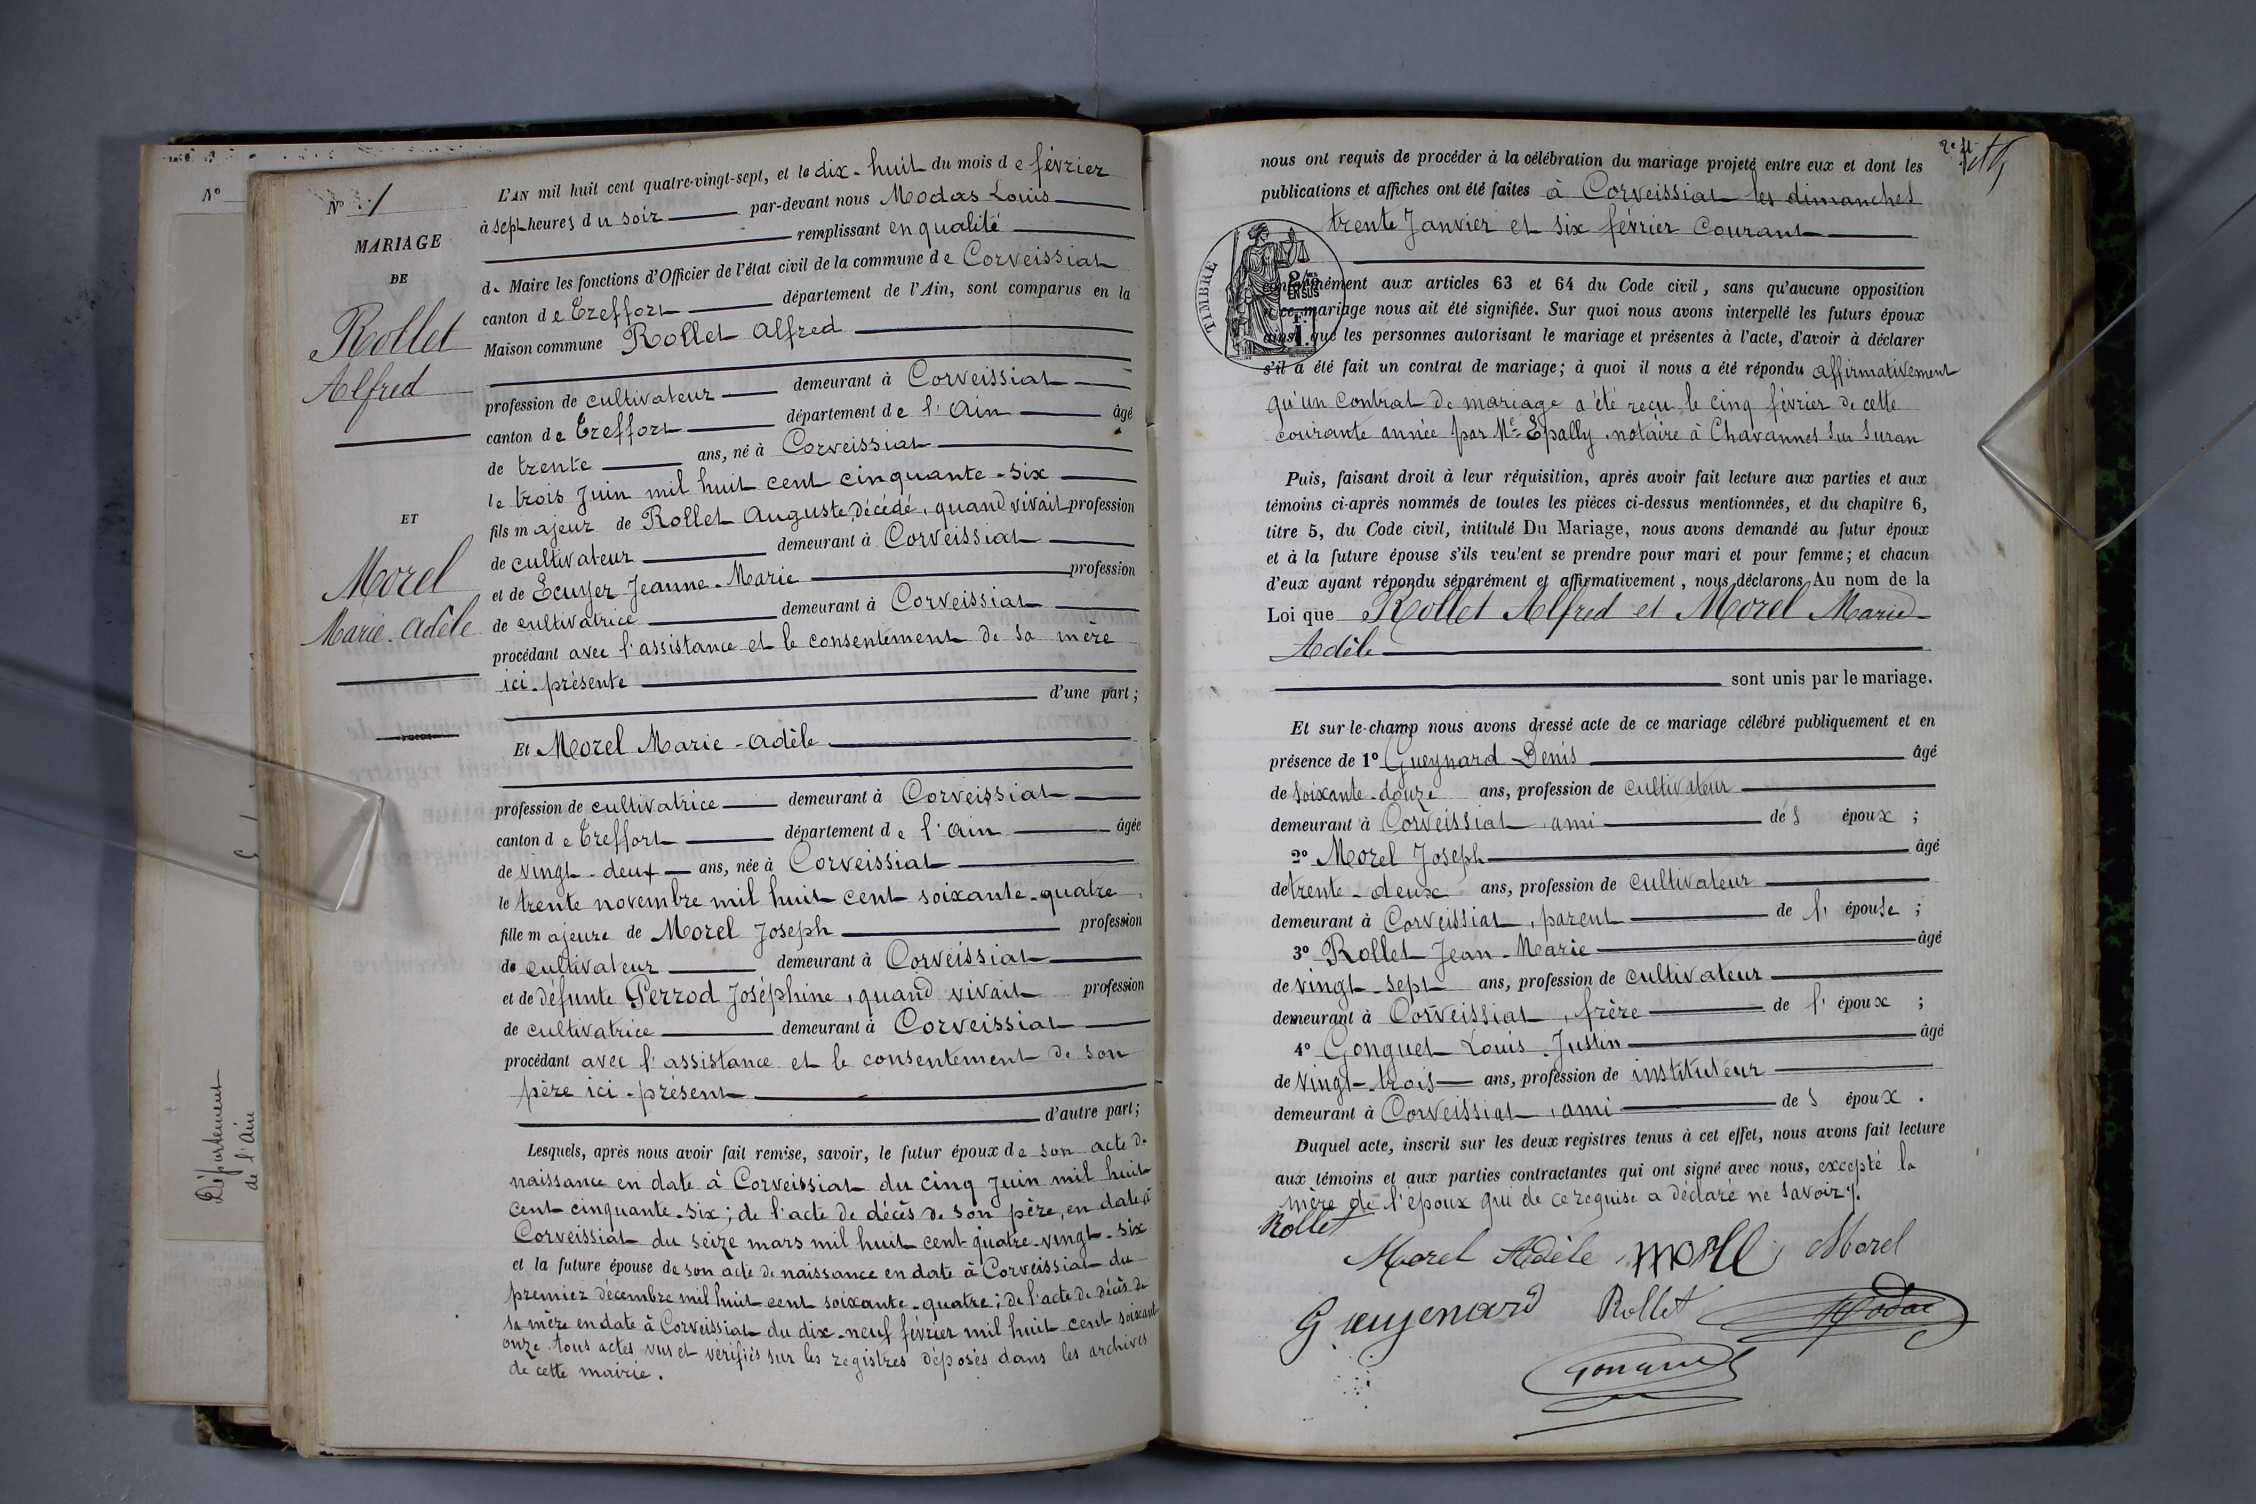 N° 1
MARIAGE
DE
Rollet
Alfred
ET
Morel
Marie-Adèle
L'AN mil huit cent quatre-vingt-sept, et le dix-huit du mois de février
à sept heures du soir par-devant nous Modas Louis
remplissant en qualité
de Maire les fonctions d'Officier de l'état civil de la commune de Corveissiat
canton de Treffort département de l'Ain, sont comparus en la
Maison commune Rollet Alfred
profession de cultivateur demeurant à Corveissiat
canton de Treffort département de l'Ain âgé
de trente ans, né à Corveissiat
le trois Juin mil huit cent cinquante-six
fils majeur de Rollet Auguste, décédé, quand vivait profession
de cultivateur demeurant à Corveissiat
et de Ecuyer Jeanne-Marie profession
de cultivatrice demeurant à Corveissiat
procédant avec l'assistance et le consentement de sa mère
ici-présente
d'une part;
Et Morel Marie-Adèle
profession de cultivatrice demeurant à Corveissiat
canton de Treffort département de l'Ain âgée
de vingt-deux ans, née à Corveissiat
le trente novembre mil huit cent soixante-quatre
fille majeure de Morel Joseph profession
de cultivateur demeurant à Corveissiat
et de défunte Perrod Joséphine, quand vivait profession
de cultivatrice demeurant à Corveissiat
procédant avec l'assistance et le consentement de son
père ici-présent
d'autre part;
Lesquels, après nous avoir fait remise, savoir, le futur époux de son acte de
naissance en date à Corveissiat du cinq Juin mil huit
cent cinquante-six; de l'acte de décès de son père, en date à
Corveissiat du seize mars mil huit cent quatre-vingt-six
et la future épouse de son acte de naissance en date à Corveissiat du
premier décembre mil huit cent soixante-quatre; de l'acte de décès de
sa mère en date à Corveissiat du dix-neuf février mil huit cent soixante
onze. tous actes vus et vérifiés sur les registres déposés dans les archives
de cette mairie.
N°
Département
de l'Ain
nous ont requis de procéder à la célébration du mariage projeté entre eux et dont les
publications et affiches ont été faites à Corveissiat les dimanches
trente Janvier et six février courant
TIMBRE
conformément aux articles 63 et 64 du Code civil, sans qu'aucune opposition
à ce mariage nous ait été signifiée. Sur quoi nous avons interpellé les futurs époux
ainsi que les personnes autorisant le mariage et présentes à l'acte, d'avoir à déclarer
s'il a été fait un contrat de mariage; à quoi il nous a été répondu affirmativement
qu'un contrat de mariage a été reçu le cinq février de cette
courante année par Me Epally notaire à Chavannes sur Suran
Puis, faisant droit à leur réquisition, après avoir fait lecture aux parties et aux
témoins ci-après nommés de toutes les pièces ci-dessus mentionnées, et du chapitre 6,
titre 5, du Code civil, intitulé Du Mariage, nous avons demandé au futur époux
et à la future épouse s'ils veulent se prendre pour mari et pour femme; et chacun
d'eux ayant répondu séparément et affirmativement, nous déclarons Au nom de la
Loi que Rollet Alfred et Morel Marie
Adèle
sont unis par le mariage.
Et sur-le-champ nous avons dressé acte de ce mariage célébré publiquement et en
présence de 1° Gueynard Denis âgé
de soixante-douze ans, profession de cultivateur
demeurant à Corveissiat, ami des époux;
2° Morel Joseph âgé
de trente-deux ans, profession de cultivateur
demeurant à Corveissiat, parent de l'épouse;
3° Rollet Jean-Marie âgé
de vingt-sept ans, profession de cultivateur
demeurant à Corveissiat, frère de l'époux;
4° Gonguet Louis-Justin âgé
de vingt-trois ans, profession de instituteur
demeurant à Corveissiat, ami des époux.
Duquel acte, inscrit sur les deux registres tenus à cet effet, nous avons fait lecture
aux témoins et aux parties contractantes qui ont signé avec nous, excepté la
mère de l'époux qui de ce requise a déclaré ne savoir.
Rollet
Morel Adèle morel Morel
Rollet